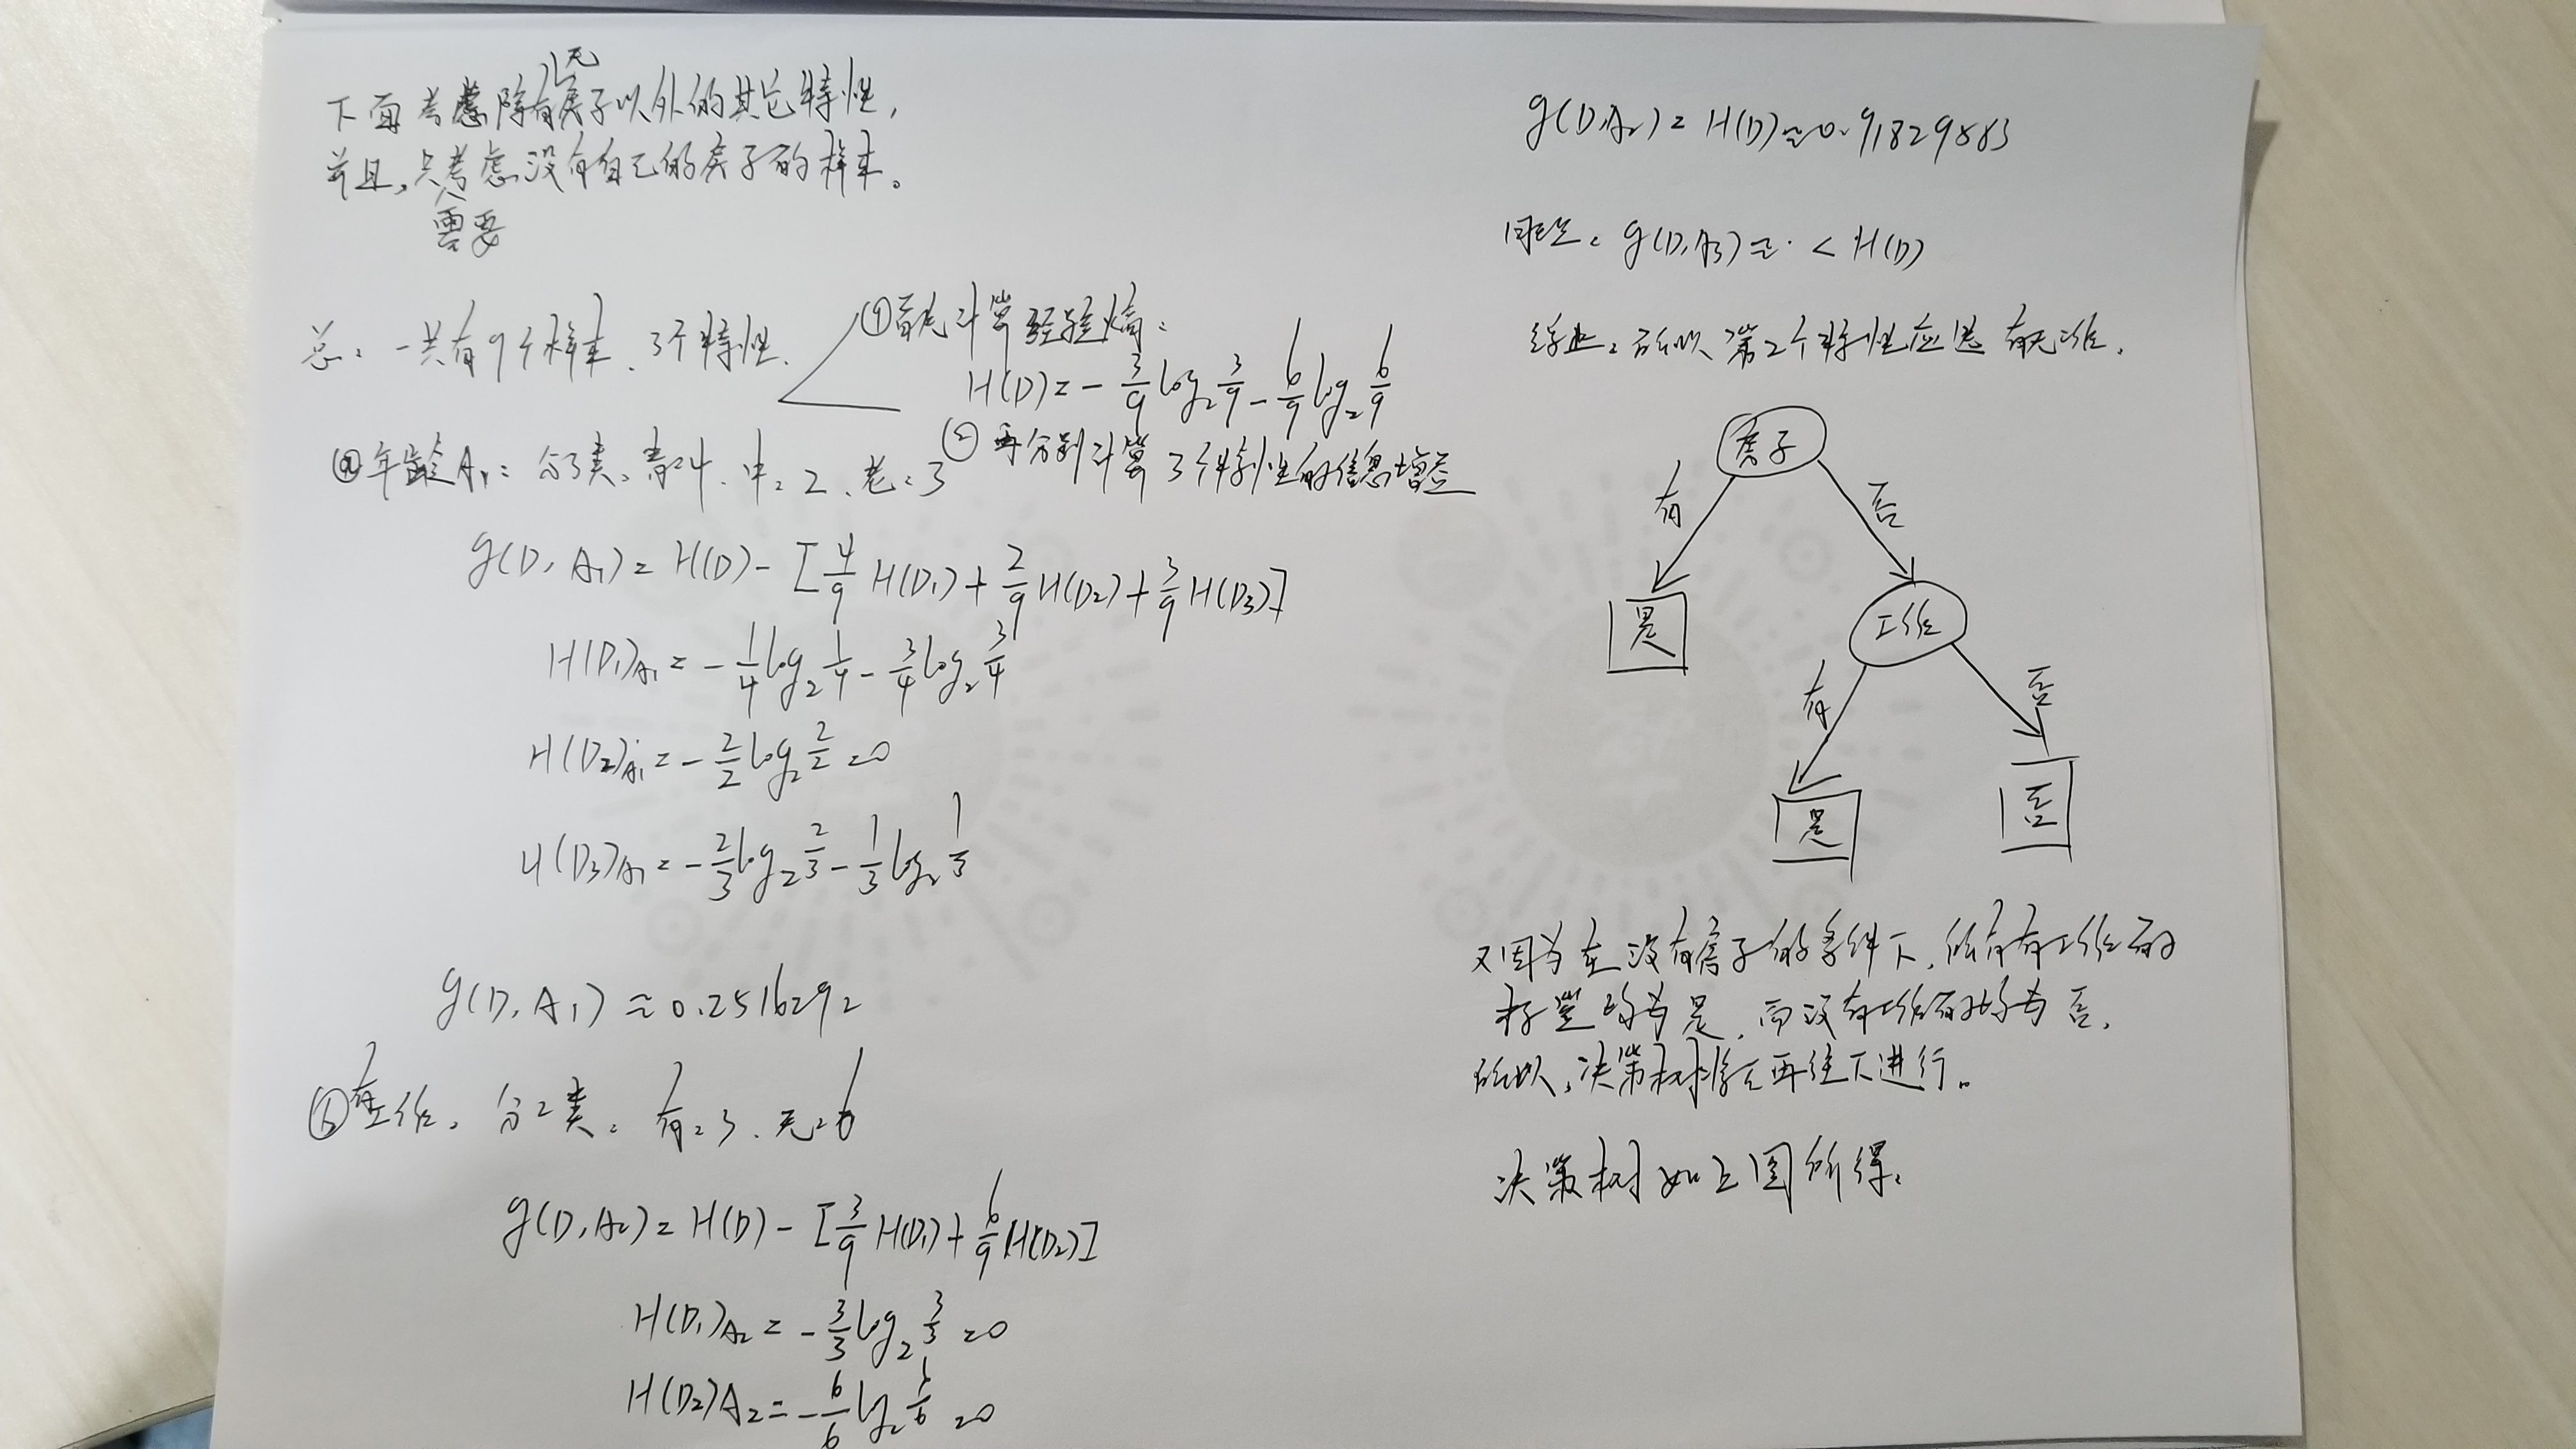 下面考虑除有无房子以外的其它特性,
并且,只需要考虑没有自己的房子的样本。
总:一共有9个样本、3个特性.
①首先计算经验熵:
H(D)=-3/9 log₂ 3/9 - 6/9 log₂ 6/9
②再分别计算3个特性的信息增益
ⓐ年龄A₁:分3类:青:4、中:2、老:3
g(D,A₁)=H(D)-[4/9 H(D₁)+2/9 H(D₂)+3/9 H(D₃)]
H(D₁)A₁=-1/4 log₂ 1/4 - 3/4 log₂ 3/4
H(D₂)A₁=-2/2 log₂ 2/2 =0
H(D₃)A₁=-2/3 log₂ 2/3 - 1/3 log₂ 1/3
g(D,A₁)≈0.2516292
ⓑ有工作:分2类:有:3、无:6
g(D,A₂)=H(D)-[3/9 H(D₁)+6/9 H(D₂)]
H(D₁)A₂=-3/3 log₂ 3/3 =0
H(D₂)A₂=-6/6 log₂ 6/6 =0
g(D,A₂)=H(D)≈0.91829583
同理:g(D,A₃)= < H(D)
综上:所以第2个特性应选 有无工作.
房子
有
否
是
工作
有
否
是
否
又因为在没有房子的条件下,所有有工作的
标签均为是,而没有工作的均为否,
所以,决策树将不再往下进行。
决策树如上图所得.